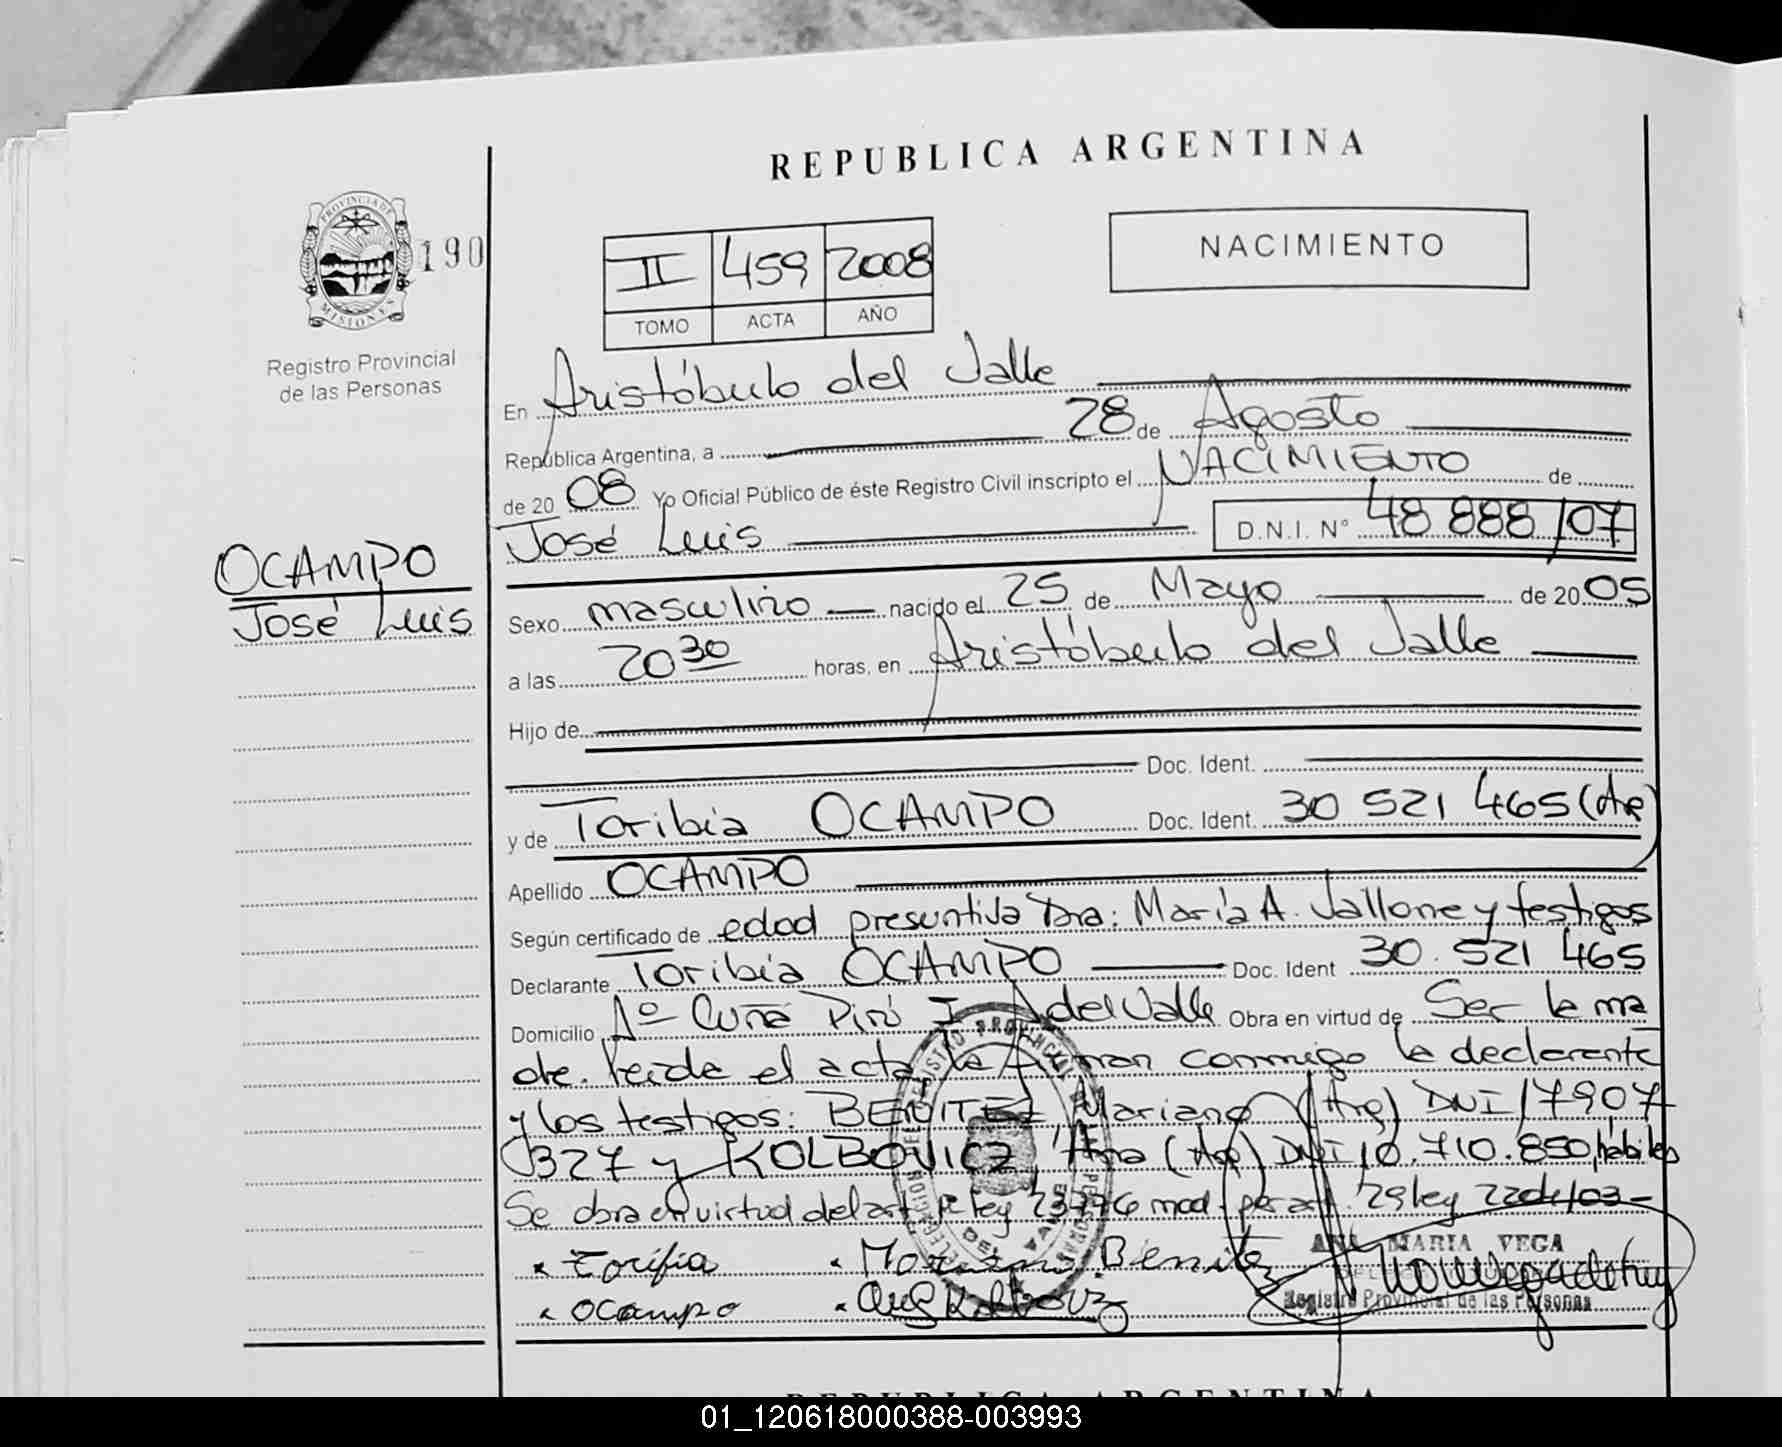 REPUBLICA ARGENTINA
PROVINCIA DE
MISIONES
190
Registro Provincial
de las Personas
II 459 2008
TOMO ACTA AÑO
NACIMIENTO
En Aristóbulo del Valle
República Argentina, a 28 de Agosto
de 2008 Yo Oficial Público de éste Registro Civil inscripto el NACIMIENTO de
José Luis D.N.I. N° 48 888 107
OCAMPO
José Luis
Sexo masculino nacido el 25 de Mayo de 2005
a las 20 30 horas, en Aristóbulo del Valle
Hijo de
Doc. Ident.
y de Toribia OCAMPO Doc. Ident. 30 521 465 (Ar)
Apellido OCAMPO
Según certificado de edad presuntiva Dra: María A. Vallone y testigos
Declarante Toribia OCAMPO Doc. Ident 30.521 465
Domicilio Aº Cuña Pirú I A del Valle Obra en virtud de Ser la ma
dre. Leída el acta, la firman conmigo la declarante
y los testigos: BENITEZ, Mariano (Arg) DNI 17907
327 y KOLBOVICZ, Ana (Arg) DNI 10.710.850, hábiles
Se obra en virtud del art ley 23776 mod. por art. 29 ley
Toribia Mariano Benitez
ocampo
ANA MARIA VEGA
Registro Provincial de las Personas
REPUBLICA ARGENTINA
01_120618000388-003993